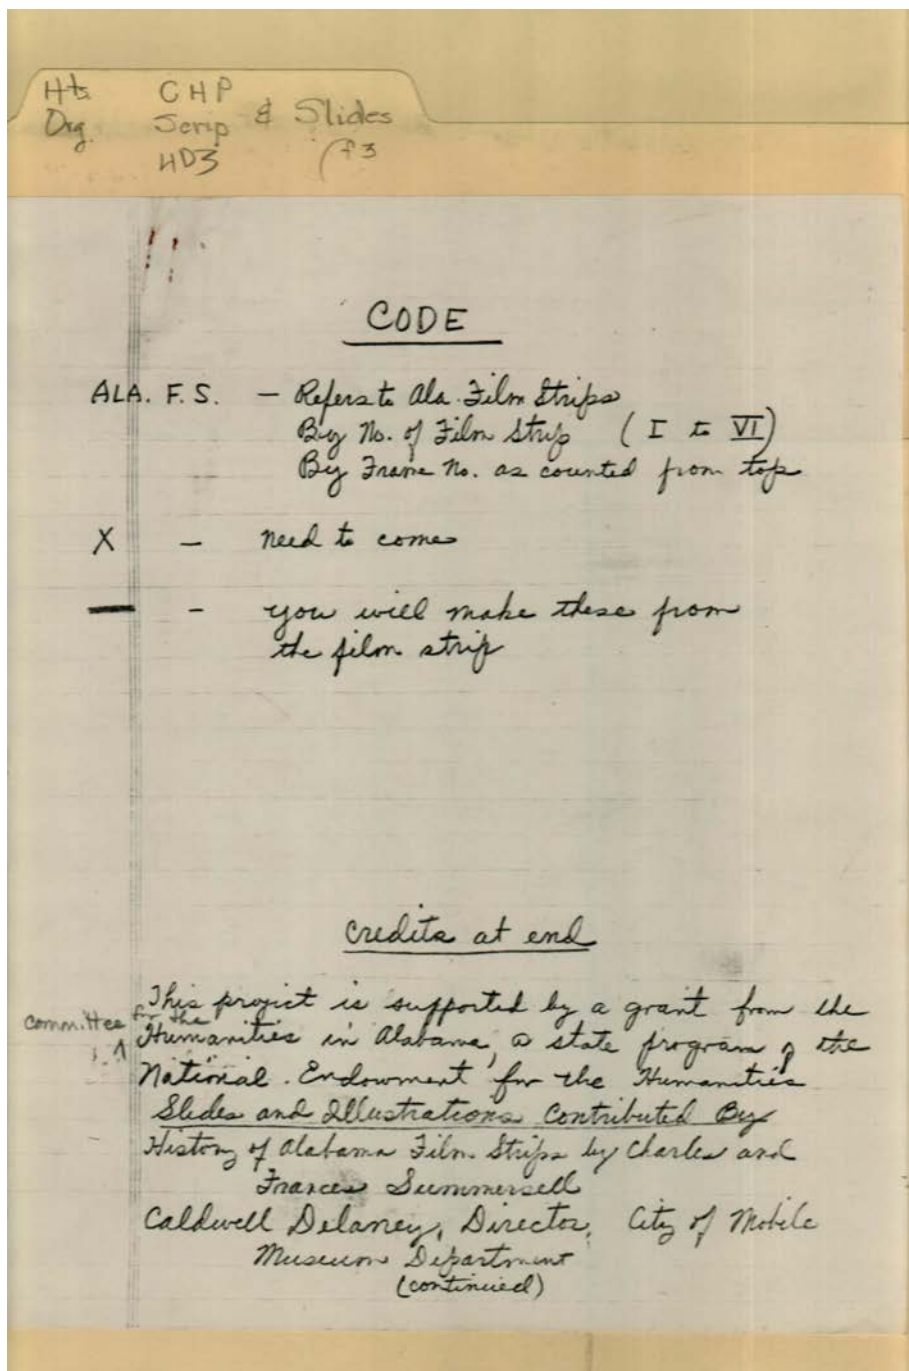 Hts. CHP
Org. Scrip & Slides
HD3 f3
CODE
ALA. F. S. - Refers to Ala. Film Strips
By No. of Film Strip (I to VI)
By Frame No. as counted from top
X - need to come
— - you will make these from
the film strip
Credits at end
This project is supported by a grant from the
committee for the Humanities in Alabama, a state program of the
National Endowment for the Humanities
Slides and Illustrations Contributed By
History of Alabama Film Strips by Charles and
Frances Summersell
Caldwell Delaney, Director, City of Mobile
Museum Department
(continued)